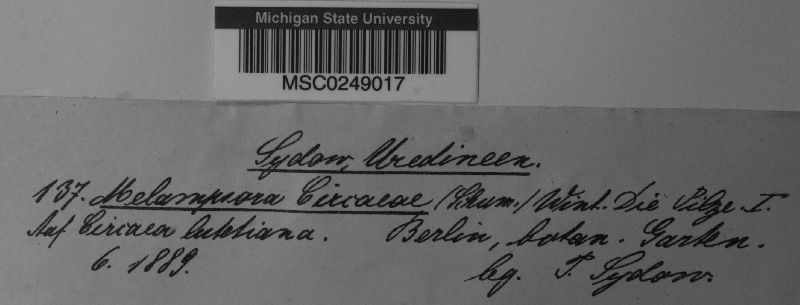 Michigan State University
MSC0249017
Sydow, Uredineen.
137. Melampsora Circaeae (Schum.) Wint. Die Pilze I.
Auf Circaea lutetiana. Berlin, botan. Garten.
6. 1889. leg. P. Sydow.